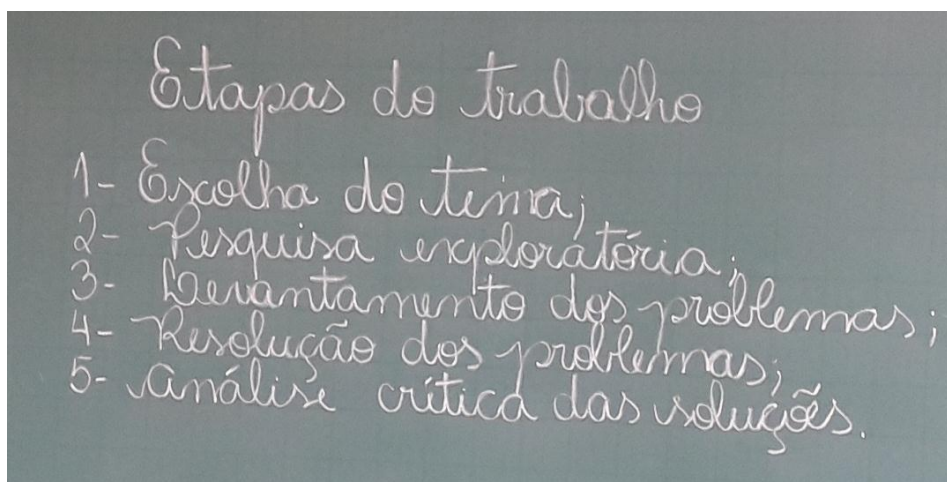 Etapas do trabalho
1- Escolha do tema;
2- Pesquisa exploratória;
3- Levantamento dos problemas;
4- Resolução dos problemas;
5- Análise crítica das soluções.